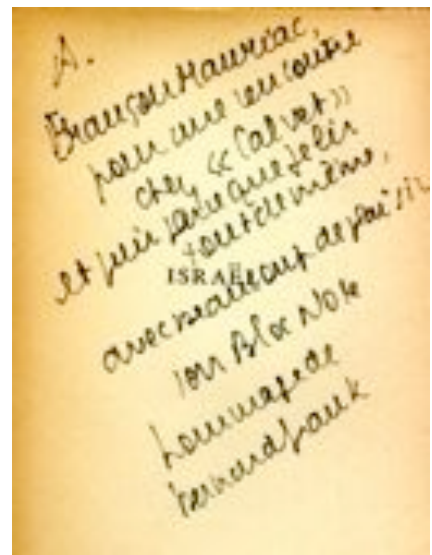 A.
François Mauriac,
pour une rencontre
chez « Calvet »
et puis parce que je lis
tout de même,
ISRAËL
avec beaucoup de plaisir
son Bloc Note
hommage de
bernard frank